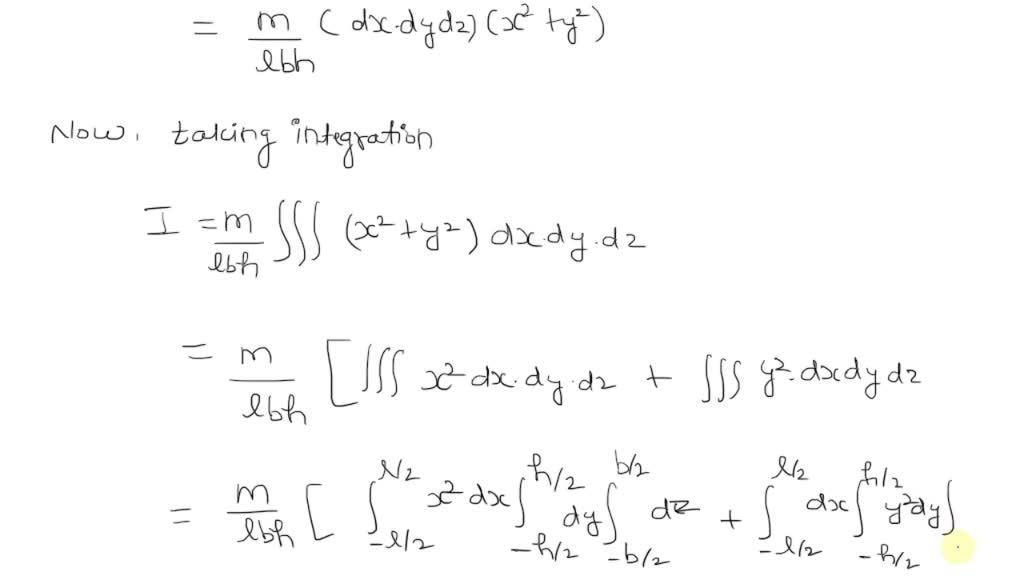 = m/lbh (dx.dydz)(x² + y²)
Now, taking integration
I = m/lbh ∭ (x² + y²) dx.dy.dz
= m/lbh [ ∭ x² dx.dy.dz + ∭ y².dxdydz
= m/lbh [ ∫_{-l/2}^{l/2} x² dx ∫_{-h/2}^{h/2} dy ∫_{-b/2}^{b/2} dz + ∫_{-l/2}^{l/2} dx ∫_{-h/2}^{h/2} y²dy ∫